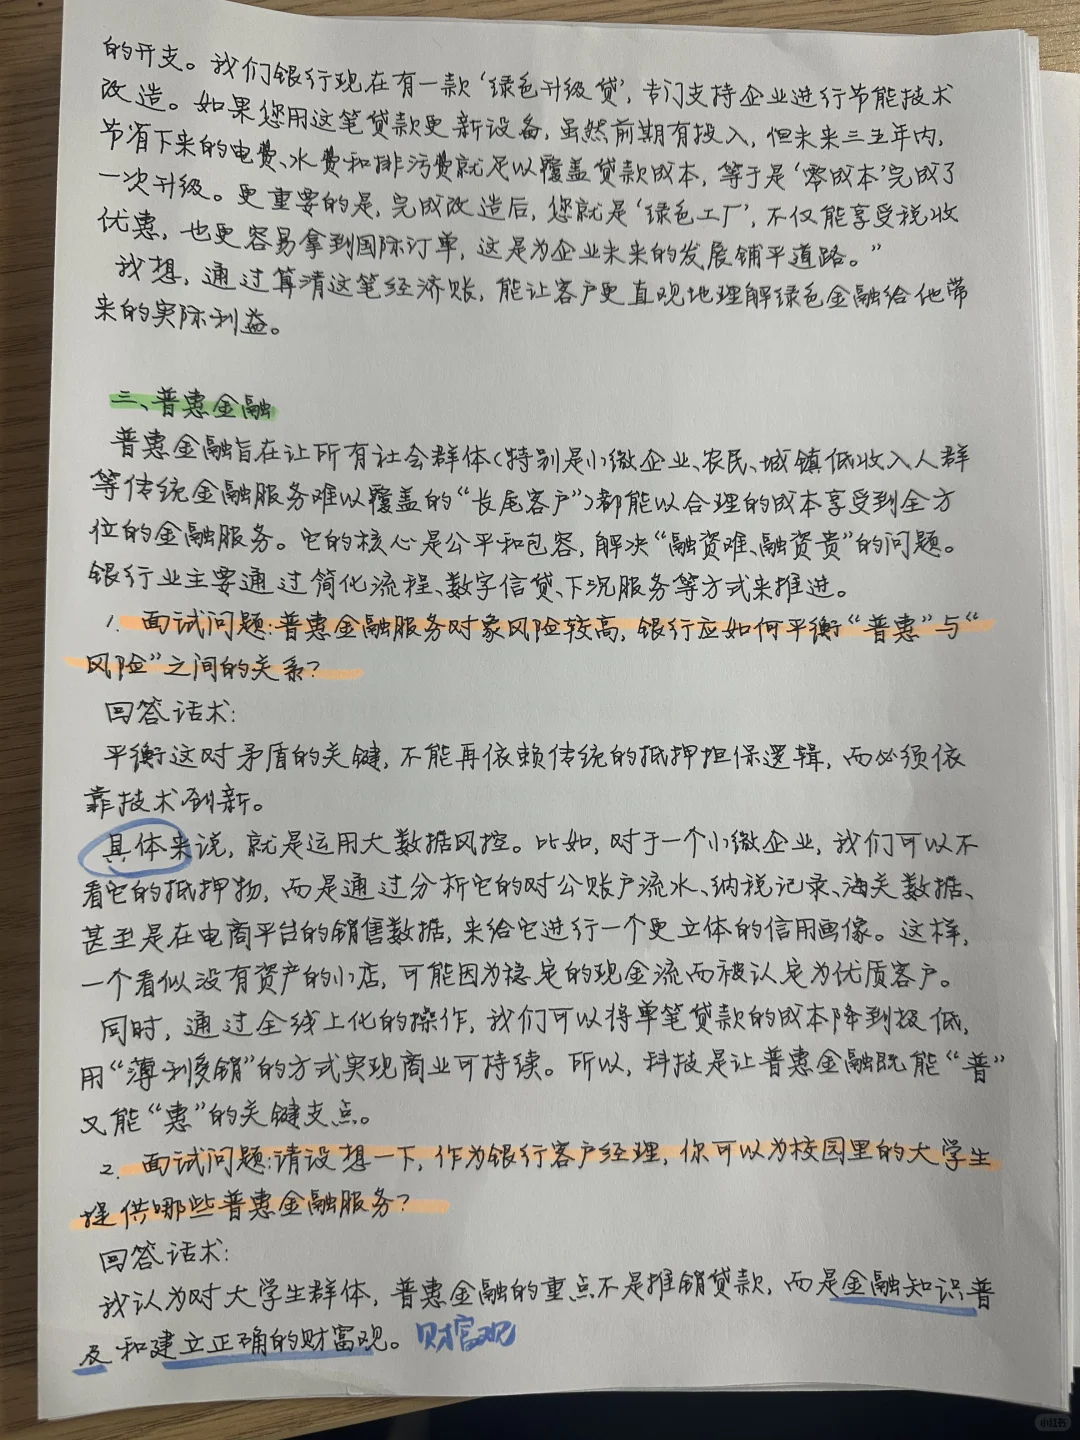 的开支。我们银行现在有一款‘绿色升级贷’，专门支持企业进行节能技术
改造。如果您用这笔贷款更新设备，虽然前期有投入，但未来三五年内，
节省下来的电费、水费和排污费就足以覆盖贷款成本，等于是‘零成本’完成了
一次升级。更重要的是，完成改造后，您就是‘绿色工厂’，不仅能享受税收
优惠，也更容易拿到国际订单，这是为企业未来的发展铺平道路。”
我想，通过算清这笔经济账，能让客户更直观地理解绿色金融给他带
来的实际利益。
三、普惠金融
普惠金融旨在让所有社会群体（特别是小微企业、农民、城镇低收入人群
等传统金融服务难以覆盖的“长尾客户”）都能以合理的成本享受到全方
位的金融服务。它的核心是公平和包容，解决“融资难、融资贵”的问题。
银行业主要通过简化流程、数字信贷、下沉服务等方式来推进。
1. 面试问题：普惠金融服务对象风险较高，银行应如何平衡“普惠”与“
风险”之间的关系？
回答话术：
平衡这对矛盾的关键，不能再依赖传统的抵押担保逻辑，而必须依
靠技术创新。
具体来说，就是运用大数据风控。比如，对于一个小微企业，我们可以不
看它的抵押物，而是通过分析它的对公账户流水、纳税记录、海关数据、
甚至是在电商平台的销售数据，来给它进行一个更立体的信用画像。这样，
一个看似没有资产的小店，可能因为稳定的现金流而被认定为优质客户。
同时，通过全线上化的操作，我们可以将单笔贷款的成本降到极低，
用“薄利多销”的方式实现商业可持续。所以，科技是让普惠金融既能“普”
又能“惠”的关键支点。
2. 面试问题：请设想一下，作为银行客户经理，你可以为校园里的大学生
提供哪些普惠金融服务？
回答话术：
我认为对大学生群体，普惠金融的重点不是推销贷款，而是金融知识普
及和建立正确的财富观。 财富观
小红书